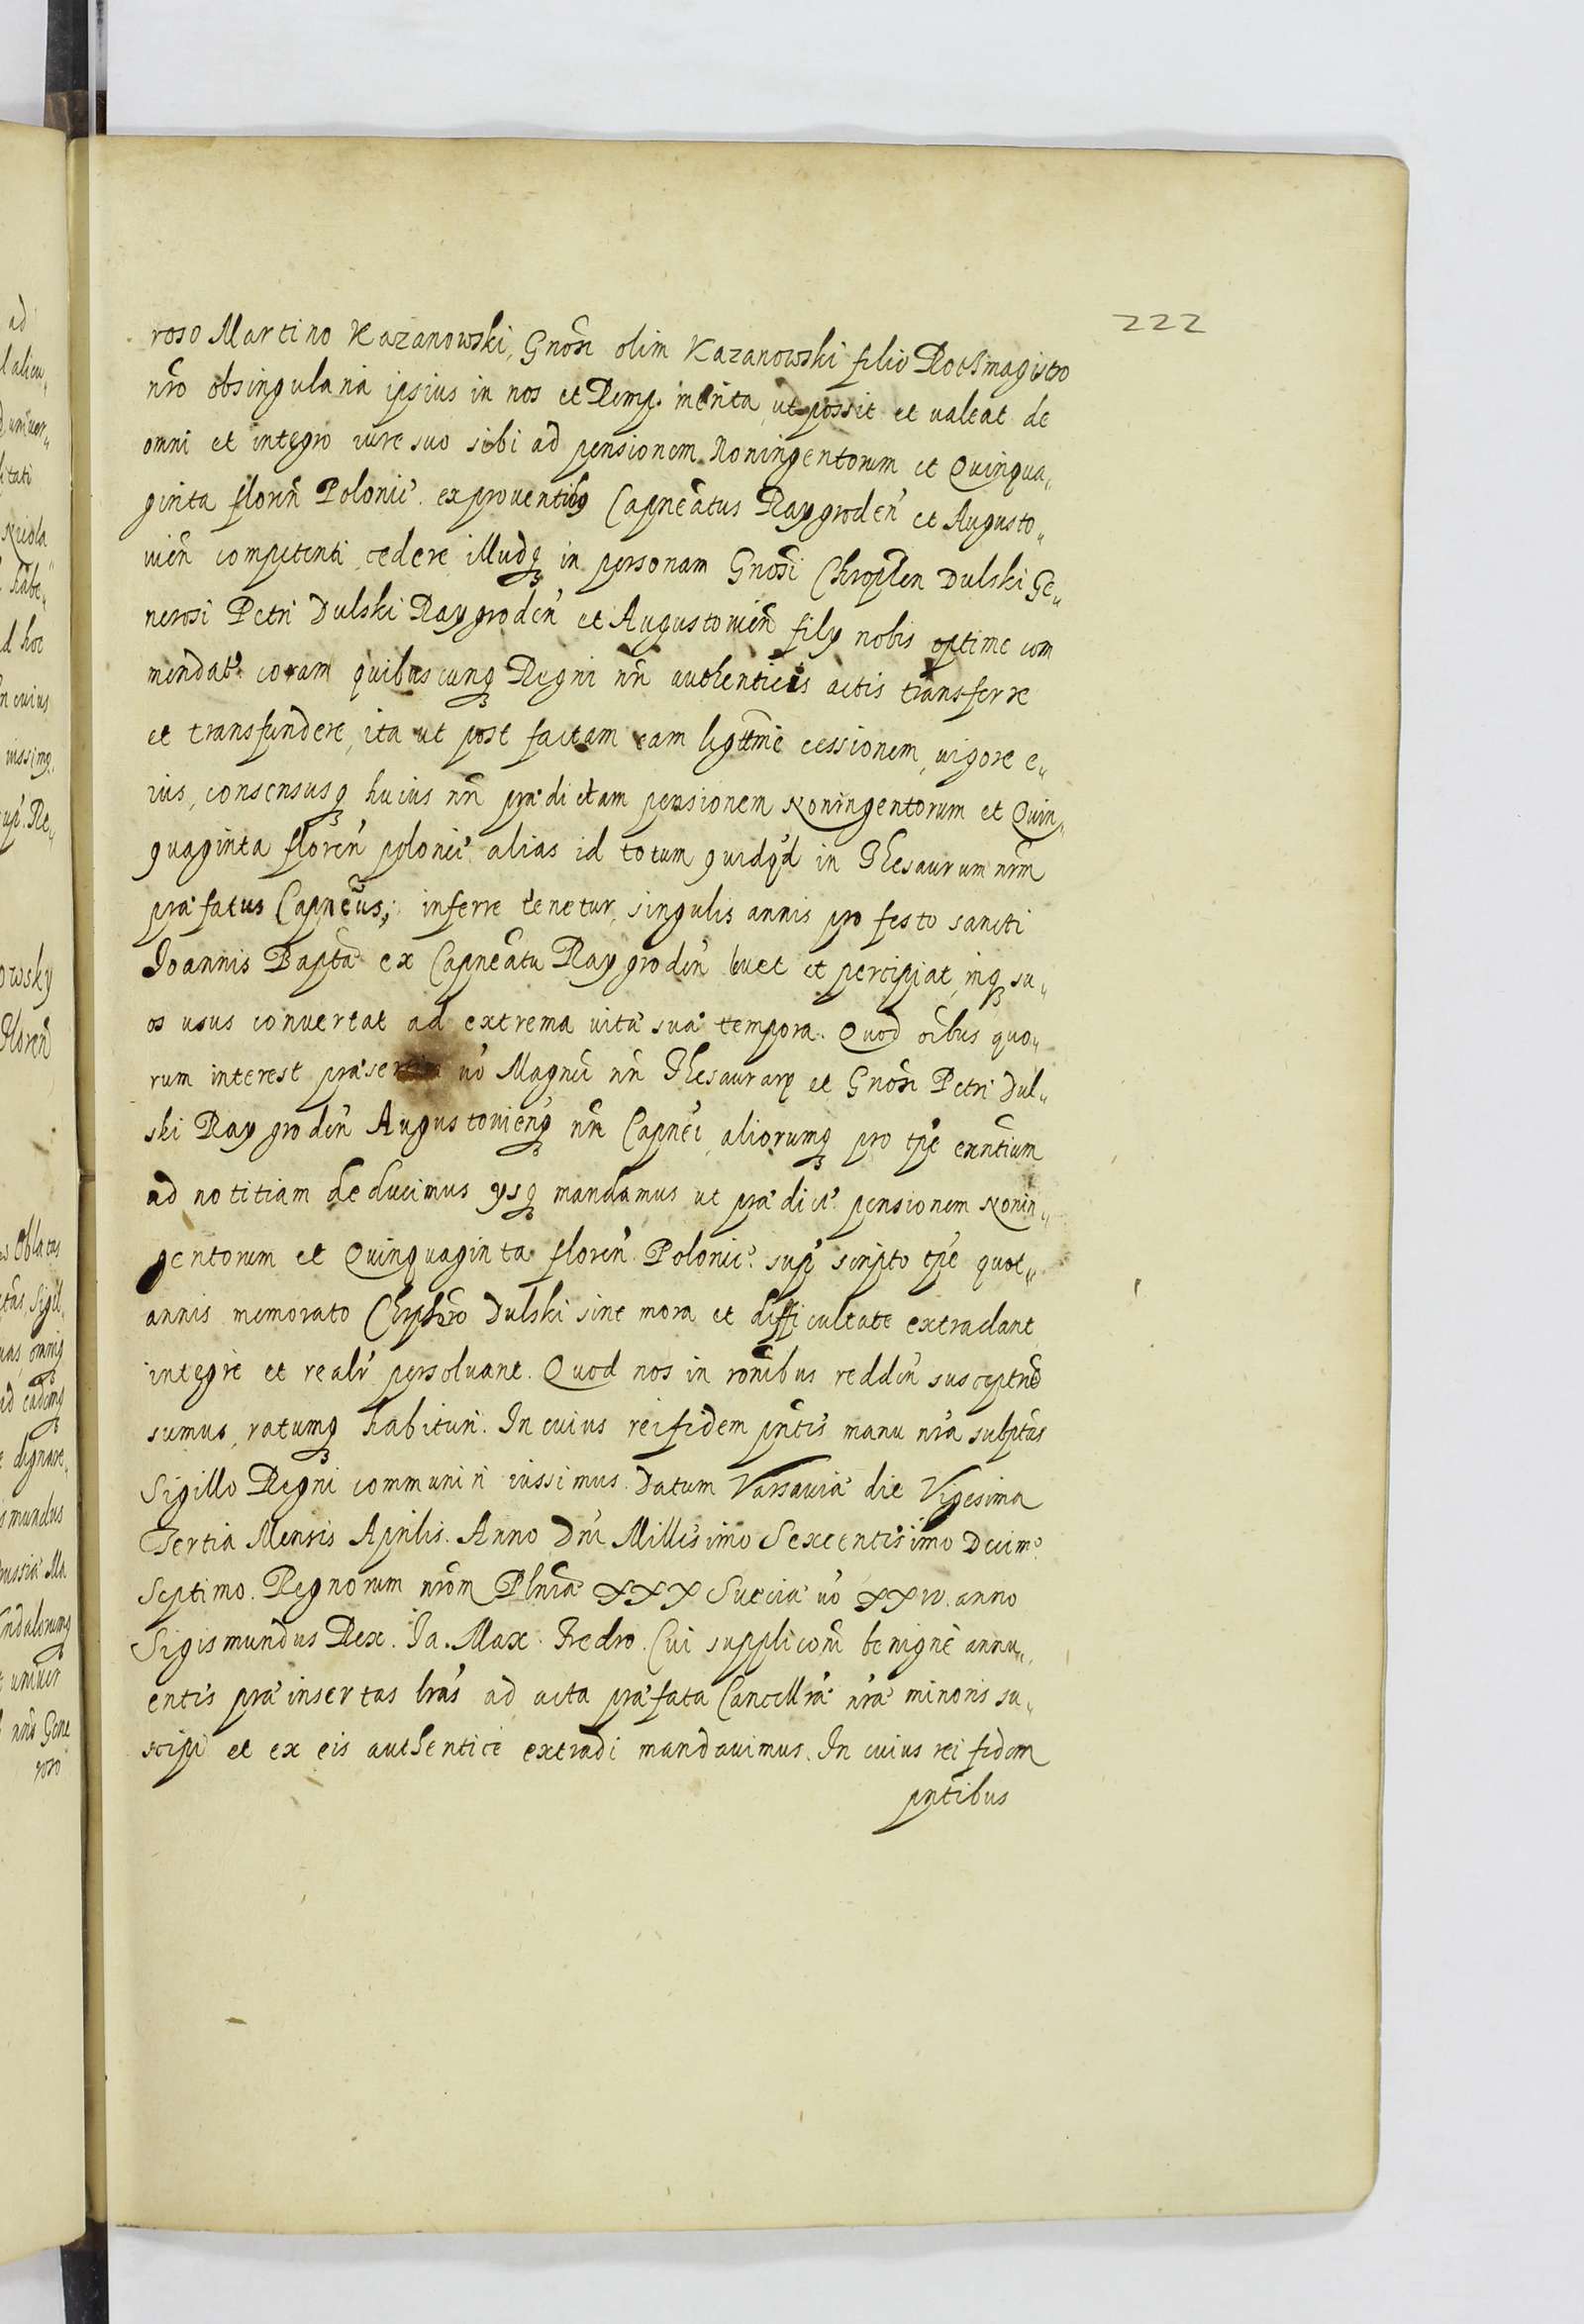 222
roso Martino Kazanowski, Gnosi olim Kazanowski filio Rotmagistro
nro ob singularia ipsius in nos et Remp. merita, ut possit et ualeat de
omni et integro iure suo sibi ad pensionem Noningentorum et Quinqua„
ginta floren Polonic. ex prouentibus Capneatus Raygroden et Augusto„
uien competenti cedere illudq in personam Gnosi Chrophen Dulski Ge„
nerosi Petri Dulski Raygroden et Augustouien filÿ nobis optime com
mendat. coram quibuscunq Regni nri authenticis actis transferre
et transfundere, ita ut post factam eam legttime cessionem, uigore e„
ius, consensusq huius nri prædictam pensionem Noningentorum et Quin„
quaginta floren polonic. alias id totum quidqd in Thesaurum nrm
præfatus Capneus, inferre tenetur, singulis annis pro festo sancti
Ioannis Bapta ex Capneatu Raygroden leuet et percipiat, inq su„
os usus conuertat ad extrema uitæ suæ tempora. Quod oibus quo„
rum interest præsertim uo Magnci nri Thesaurarÿ et Gnosi Petri Dul„
ski Raygroden Augustouienq nri Capnei, aliorumq pro tpe exntium
ad notitiam deducimus ÿsq mandamus ut prædict. pensionem Nonin„
gentorum et Quinquaginta floren Polonic. sup scripto tpe quot„
annis memorato Chrphro Dulski sine mora et difficultate extradant
integre et realr persoluant. Quod nos in ronibus redden suscepturi
sumus, ratumq habituri. In cuius rei fidem pntes manu nra subptas
Sigillo Regni communiri iussimus. Datum Varsauiæ die Vigesima
Tertia Mensis Aprilis. Anno Dni Millesimo Sexcentesimo Decimo
Septimo. Regnorum nrom Plniæ XXX Sueciæ uo XXIV. anno
Sigismundus Rex. Ia. Max. Fredro. Cui suppliconi benigne annu„
entes præinsertas lras ad acta præfata Cancellræ nræ minoris su„
scipi et ex eis authentice extradi mandauimus. In cuius rei fidem
pntibus